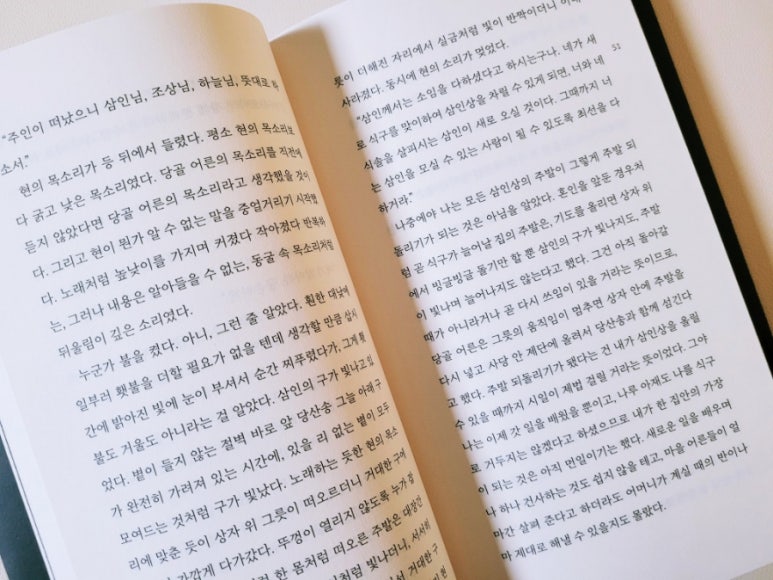 "주인이 떠났으니 삼인님, 조상님, 하늘님, 뜻대로
소서."
현의 목소리가 등 뒤에서 들렸다. 평소 현의 목소리보
다 굵고 낮은 목소리였다. 당골 어른의 목소리를 직전에
듣지 않았다면 당골 어른의 목소리라고 생각했을 것이
다. 그리고 현이 뭔가 알 수 없는 말을 중얼거리기 시작했
다. 노래처럼 높낮이를 가지며 커졌다 작아졌다 반복하
는, 그러나 내용은 알아들을 수 없는, 동굴 속 목소리처럼
뒤울림이 깊은 소리였다.
누군가 불을 켰다. 아니, 그런 줄 알았다. 훤한 대낮에
일부러 횃불을 더할 필요가 없을 텐데 생각할 만큼 삽시
간에 밝아진 빛에 눈이 부셔서 순간 찌푸렸다가, 그게 횃
불도 거울도 아니라는 걸 알았다. 삼인의 구가 빛나고 있
었다. 볕이 들지 않는 절벽 바로 앞 당산송 그늘 아래 구
가 완전히 가려져 있는 시간에, 있을 리 없는 볕이 모두
모여드는 것처럼 구가 빛났다. 노래하는 듯한 현의 목소
리에 맞춘 듯이 상자 위 그릇이 떠오르더니 거대한 구에
가깝게 다가갔다. 뚜껑이 열리지 않도록 누가 잡
한 몸처럼 떠오른 주발은 대장간
처럼 빛나더니, 서서히
거대한 구
릇이 더해진 자리에서 실금처럼 빛이 반짝이더니 이내
사라졌다. 동시에 현의 소리가 멎었다.
51
"삼인께서는 소임을 다하셨다고 하시는구나. 네가 새
로 식구를 맞이하여 삼인상을 차릴 수 있게 되면, 너와 네
식솔을 살피시는 삼인이 새로 오실 것이다. 그때까지 너
는 삼인을 모실 수 있는 사람이 될 수 있도록 최선을 다
하거라."
나중에야 나는 모든 삼인상의 주발이 그렇게 되
돌리기가 되는 것은 아님을 알았다. 혼인을 앞둔 경우처
럼 곧 식구가 늘어날 집의 주발은, 기도를 올리면 상자 위
에서 빙글빙글 돌기만 할 뿐 삼인의 구가 빛나지도, 주발
이 빛나며 늘어나지도 않는다고 했다. 그건 아직 돌아갈
때가 아니라거나 곧 다시 쓰임이 있을 거라는 뜻이므로,
당골 어른은 그릇의 움직임이 멈추면 상자 안에 주발을
다시 넣고 사당 안 제단에 올려서 당산송과 함께 섬긴다
고 했다. 주발 되돌리기가 됐다는 건 내가 삼인상을 올릴
수 있을 때까지 시일이 제법 걸릴 거라는 뜻이었다. 그야
나는 이제 갓 일을 배웠을 뿐이고, 나루 아재도 나를 식구
로 거두지는 않겠다고 하셨으므로 내가 한 집안의 가장
이 되는 것은 아직 먼일이기는 했다. 새로운 일을 배우며
나 하나 건사하는 것도 쉽지 않을 테고, 마을 어른들이 얼
마간 살펴 준다고 하더라도 어머니가 계실 때의 반이나
마 제대로 해낼 수 있을지도 몰랐다.